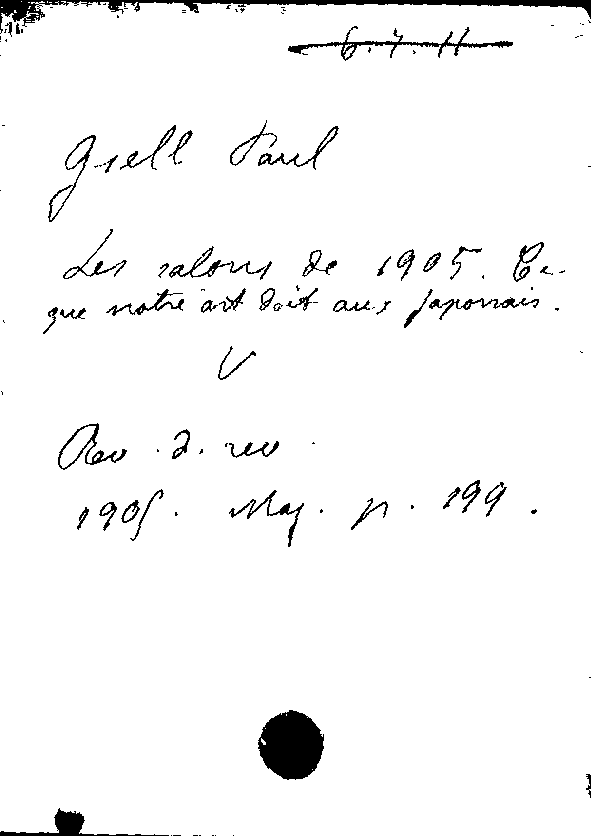 6.7.11
Gsell Paul
Les salons de 1905. Ce
que notre art doit aux Japonais.
V
Rev. d. rev.
1905. Maj. p. 199.